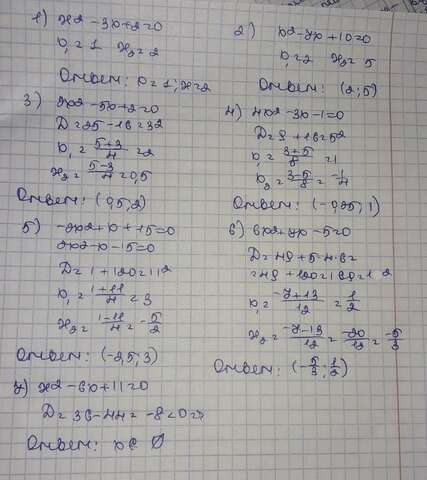 1) x² - 3x + 2 = 0
x₁ = 1 x₂ = 2
Ответ: x = 1; x = 2
2) x² - 7x + 10 = 0
x₁ = 2 x₂ = 5
Ответ: (2; 5)
3) 2x² - 5x + 2 = 0
D = 25 - 16 = 3²
x₁ = (5+3)/4 = 2
x₂ = (5-3)/4 = 0,5
Ответ: (0,5; 2)
4) 4x² - 3x - 1 = 0
D = 9 + 16 = 5²
x₁ = (3+5)/8 = 1
x₂ = (3-5)/8 = -1/4
Ответ: (-0,25; 1)
5) -2x² + x + 15 = 0
2x² - x - 15 = 0
D = 1 + 120 = 11²
x₁ = (1+11)/4 = 3
x₂ = (1-11)/4 = -5/2
Ответ: (-2,5; 3)
6) 6x² + 7x - 5 = 0
D = 49 + 5·4·6 =
= 49 + 120 = 169 = 1 2
x₁ = (-7+13)/12 = 1/2
x₂ = (-7-13)/12 = -20/12 = -5/3
Ответ: (-5/3; 1/2)
7) x² - 6x + 11 = 0
D = 36 - 44 = -8 < 0 =>
Ответ: x ∈ Ø